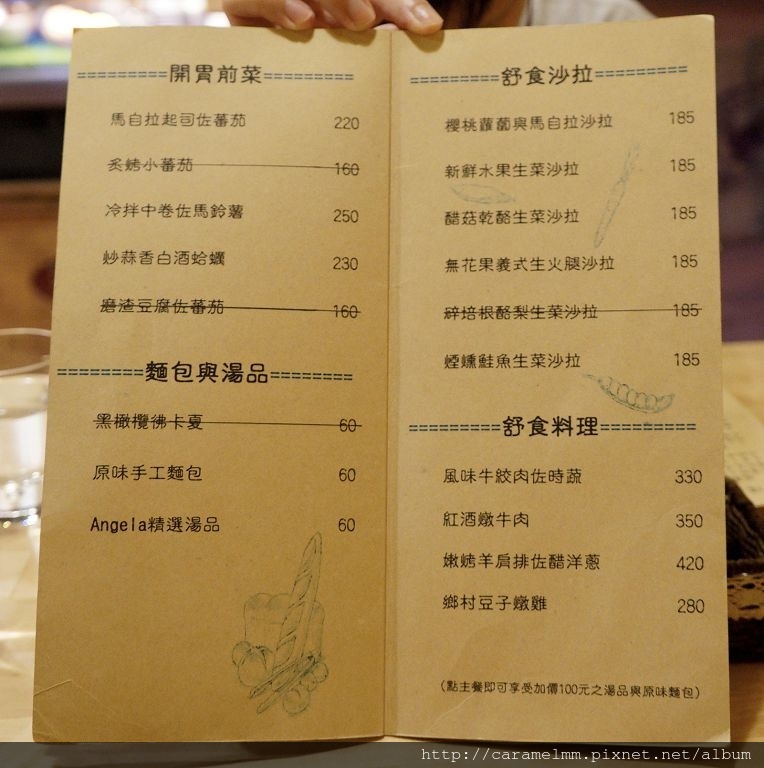 =========開胃前菜=========
馬自拉起司佐蕃茄 220
炙烤小蕃茄 160
冷拌中卷佐馬鈴薯 250
炒蒜香白酒蛤蠣 230
磨渣豆腐佐蕃茄 160
=========麵包與湯品=========
黑橄欖彿卡夏 60
原味手工麵包 60
Angela精選湯品 60
=========舒食沙拉=========
櫻桃蘿蔔與馬自拉沙拉 185
新鮮水果生菜沙拉 185
醋菇乾酪生菜沙拉 185
無花果義式生火腿沙拉 185
碎培根酪梨生菜沙拉 185
煙燻鮭魚生菜沙拉 185
=========舒食料理=========
風味牛絞肉佐時蔬 330
紅酒燉牛肉 350
嫩烤羊肩排佐醋洋蔥 420
鄉村豆子燉雞 280
(點主餐即可享受加價100元之湯品與原味麵包)
http://caramelmm.pixnet.net/album